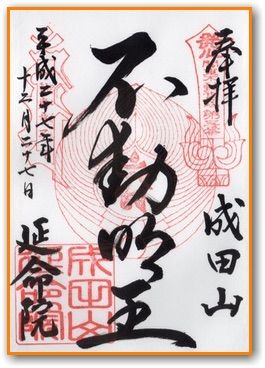 奉拝
成田山
不動明王
平成二十七年
十二月二十七日
延命院